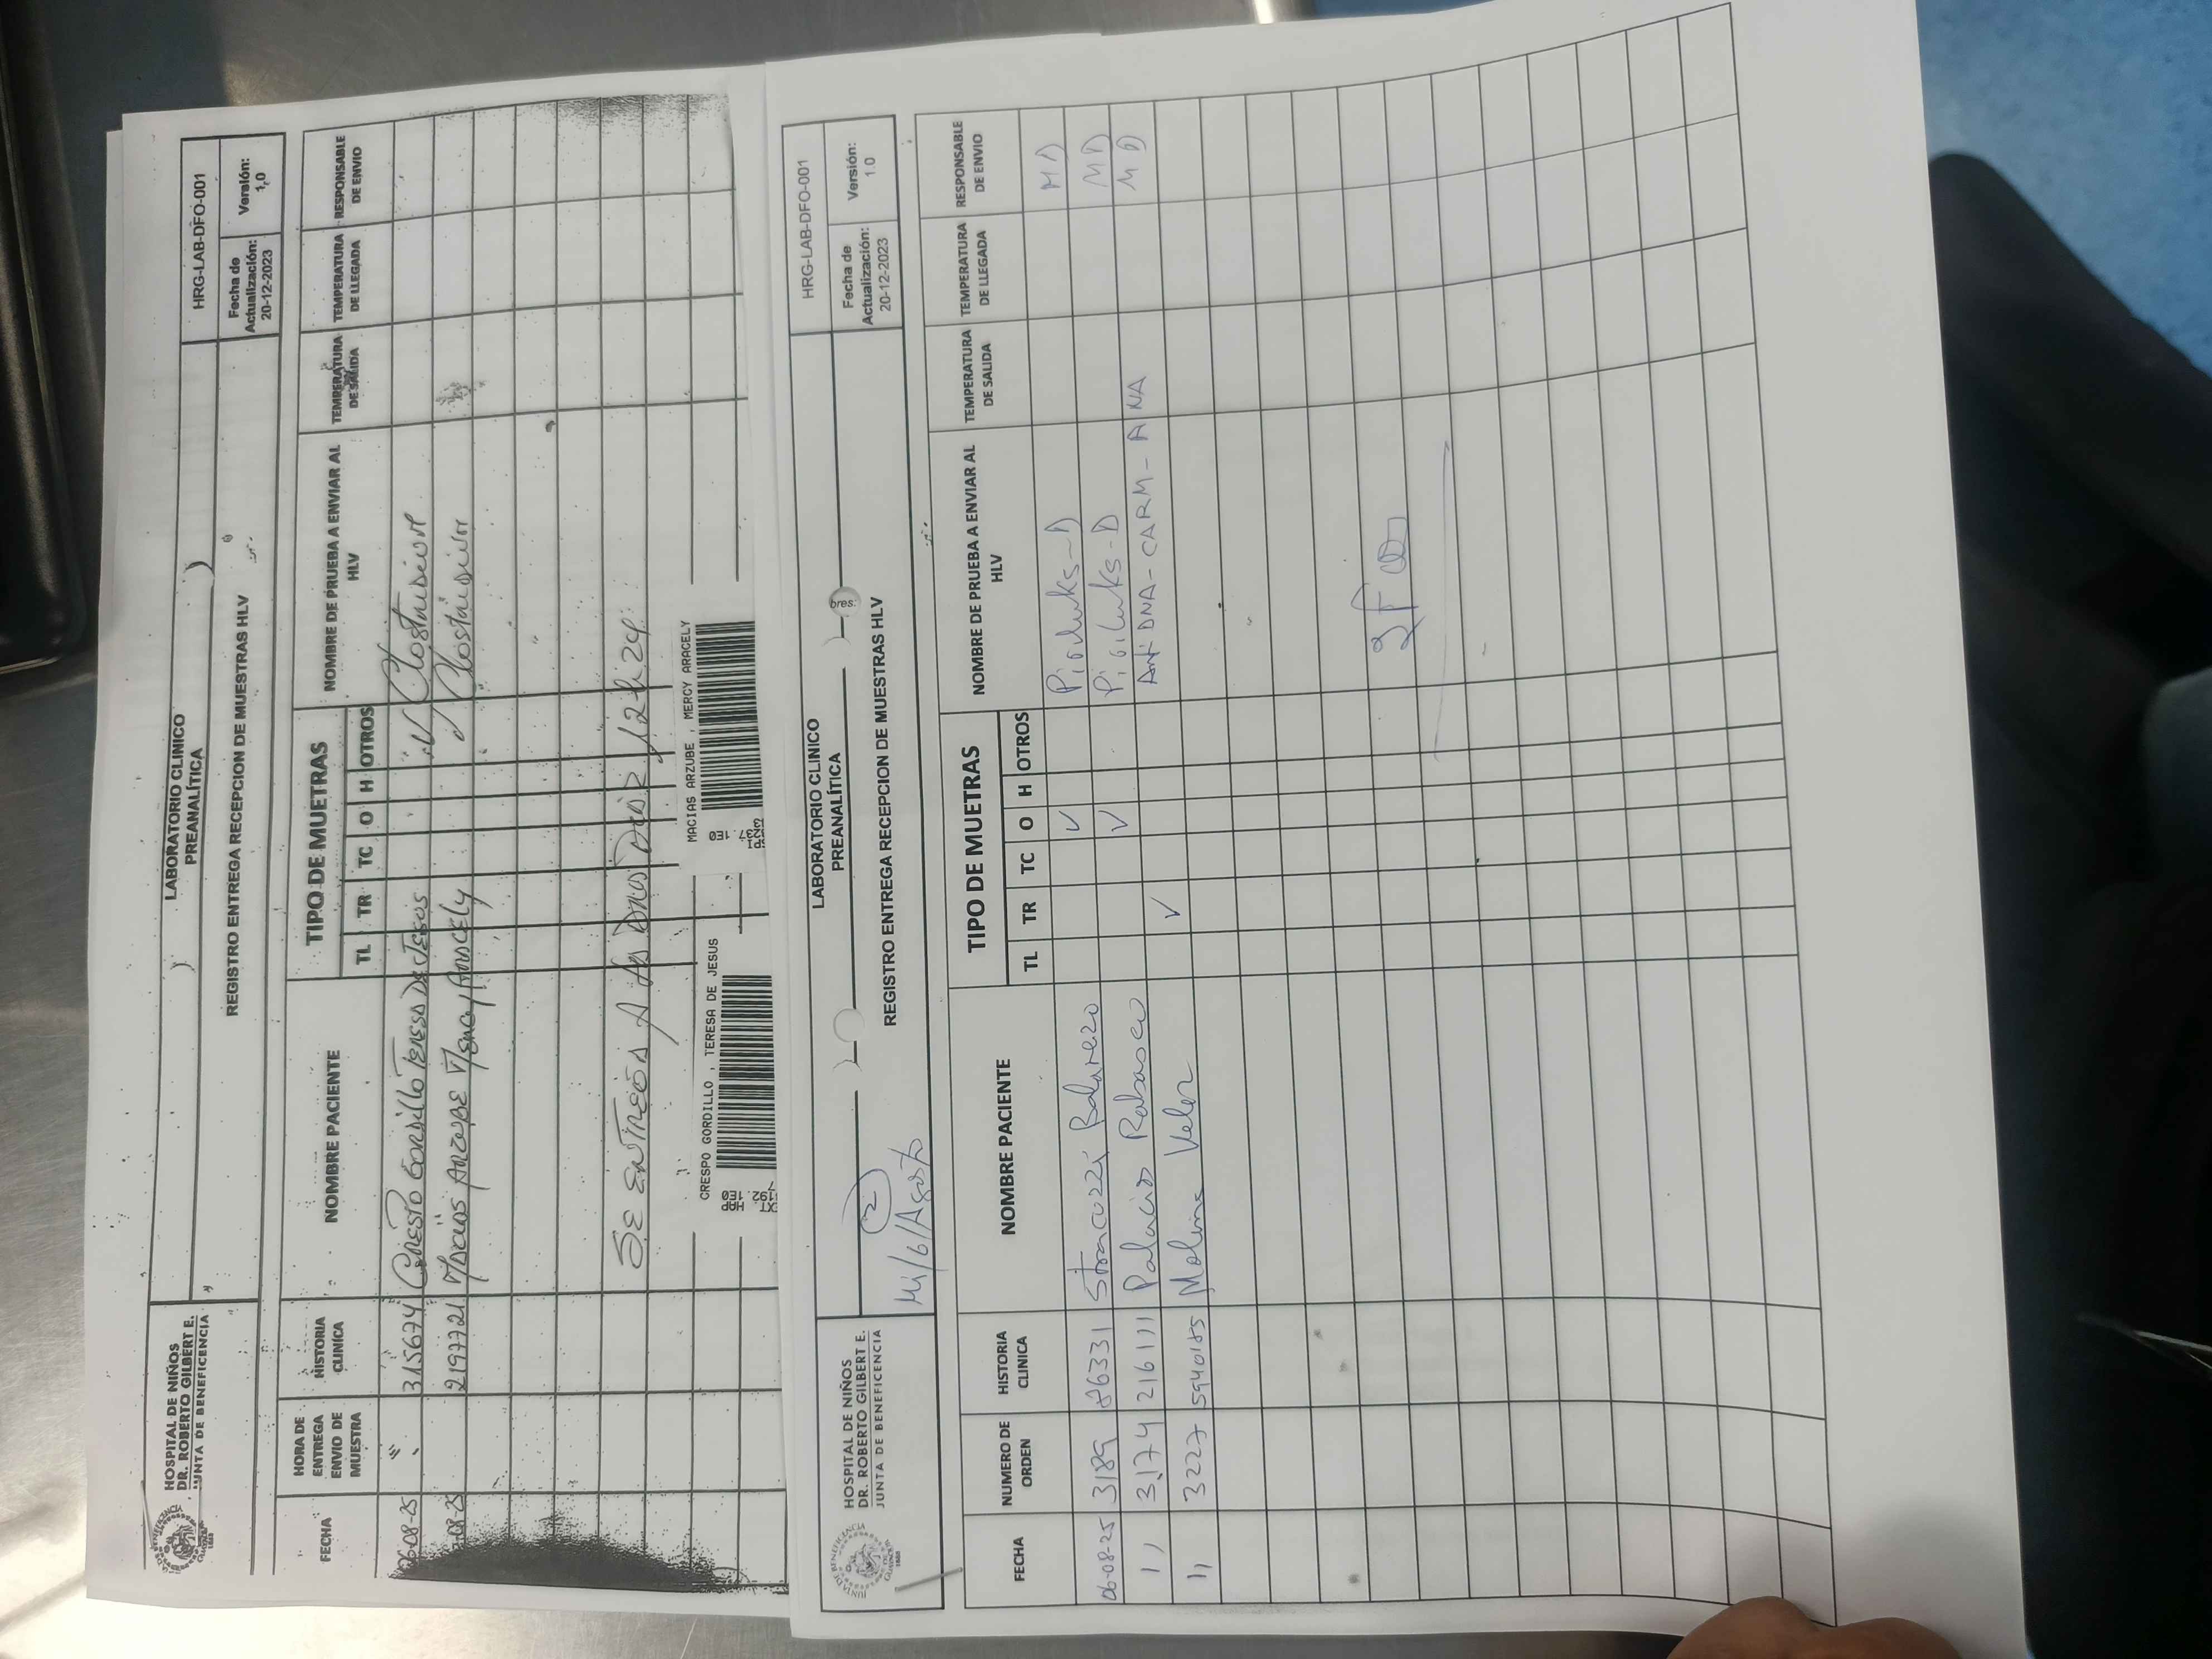 HOSPITAL DE NIÑOS
DR. ROBERTO GILBERT E.
JUNTA DE BENEFICENCIA
LABORATORIO CLINICO
PREANALÍTICA
REGISTRO ENTREGA RECEPCION DE MUESTRAS HLV
HRG-LAB-DFO-001
Fecha de
Actualización:
20-12-2023
Versión:
1,0
FECHA
HORA DE
ENTREGA
ENVIO DE
MUESTRA
HISTORIA
CLINICA
NOMBRE PACIENTE
TIPO DE MUETRAS
TL TR TC O H OTROS
NOMBRE DE PRUEBA A ENVIAR AL
HLV
TEMPERATURA
DE SALIDA
TEMPERATURA
DE LLEGADA
RESPONSABLE
DE ENVIO
06-08-25 315674 Crespo Gordillo Teresa De Jesus
219772 Macias Arzube Mercy Aracely
Se entrega a las
CRESPO GORDILLO , TERESA DE JESUS
MACIAS ARZUBE , MERCY ARACELY
HOSPITAL DE NIÑOS
DR. ROBERTO GILBERT E.
JUNTA DE BENEFICENCIA
LABORATORIO CLINICO
PREANALÍTICA
2
Mi/6/Agosto
REGISTRO ENTREGA RECEPCION DE MUESTRAS HLV
bres:
HRG-LAB-DFO-001
Fecha de
Actualización:
20-12-2023
Versión:
1.0
FECHA
NUMERO DE
ORDEN
HISTORIA
CLINICA
NOMBRE PACIENTE
TIPO DE MUETRAS
TL TR TC O H OTROS
NOMBRE DE PRUEBA A ENVIAR AL
HLV
TEMPERATURA
DE SALIDA
TEMPERATURA
DE LLEGADA
RESPONSABLE
DE ENVIO
06-08-25 3189 86331 Stracozzi Balarezo ✓ MD
11 3174 216111 Palacios Rabasco ✓ MD
11 3227 5940185 Molina Velez ✓ Anti DNA - CARM - ANA MD